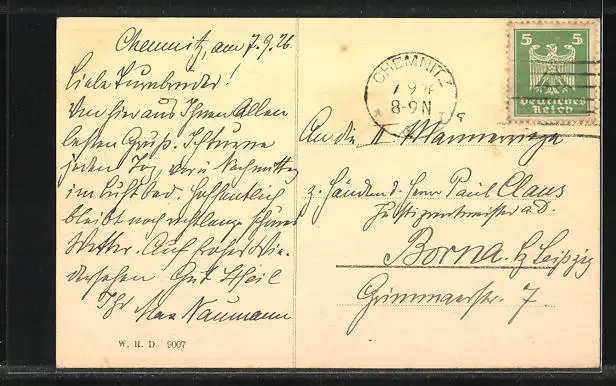 Chemnitz, am 7.9.26.
Liebe Turnbrüder!
Von hier aus Ihnen Allen
besten Gruß. Ich turne
jeden Tag, vor u. Nachmittag
im Luftbad. Hoffentlich
bleibt noch recht lange schönes
Wetter. Auf frohes Wie-
dersehen Gut Heil
Ihr
Max Naumann
W. H. D. 9007
CHEMNITZ
7.9.26
8-9N
5 5
Deutsches
Reich
An die II. Männerriege
z. Händen d. Herrn Paul Claus
Justizrentmeister a.D.
Borna. b/ Leipzig
Grimmaerstr. 7